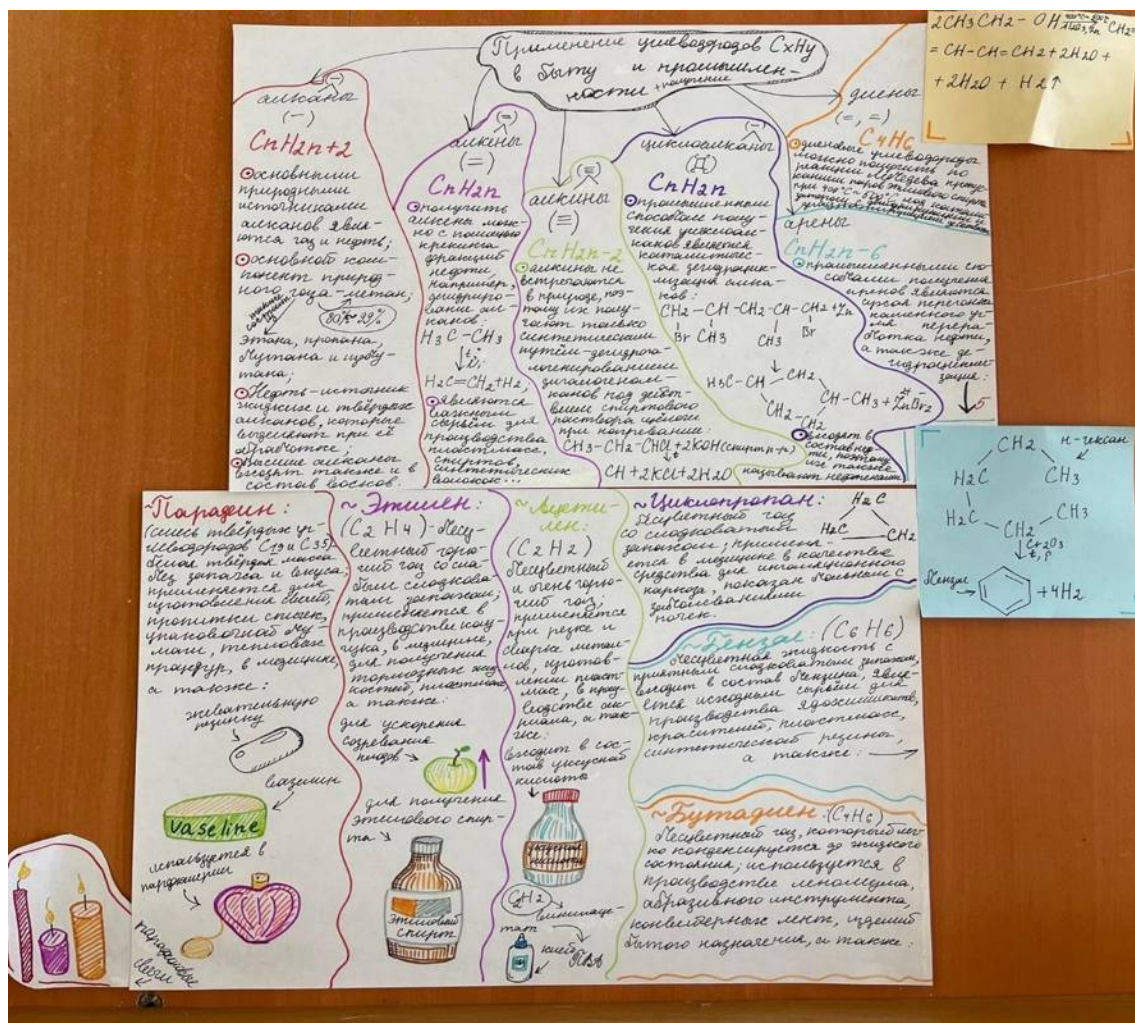 Применение углеводородов CxHy
в быту и промышлен-
ности + получение
алканы
(−)
CnH2n+2
основными
природными
источниками
алканов явля-
ются газ и нефть;
основной ком-
понент природ-
ного газа-метан;
80%-99%
также
состоит
из
этана, пропана,
бутана и изобу-
тана;
Нефть-источник
жидких и твёрдых
алканов, которые
выделяют при её
обработке;
Высшие алканы
входят также и в
состав восков.
алкены
(=)
CnH2n
получить
алкены мож-
но с помощью
крекинга
фракций
нефти,
например,
дегидриро-
вание ал-
канов:
H3C-CH3
H2C=CH2+H2;
являются
важным
сырьём для
производства
пластмасс,
спиртов,
синтетических
волокон...
алкины
(≡)
CnH2n-2
алкины не
встречаются
в природе, поэ-
тому их полу-
чают только
синтетическим
путём-дегидрога-
логенированием
дигалогенал-
канов под дейст-
вием спиртового
раствора щёлочи
при нагревании:
CH3-CH2-CHCl2+2KOH(спирт.р-р)
t
CH+2KCl+2H2O
циклоалканы
CnH2n
промышленным
способом полу-
чения циклоал-
канов является
каталитичес-
кая дегидроцик-
лизация алка-
нов:
CH2-CH-CH2-CH-CH2+Zn
Br CH3 CH3 Br
H3C-CH CH2
CH-CH3+ZnBr2
CH2-CH2
входят в
состав неф-
ти, поэтому
их также
называют нафтенами
диены
(=,=)
C4H6
диеновые углеводороды
можно получить по
реакции Лебедева пропус-
канием паров этилового спирта
при 400°C-500°C над
арены
CnH2n-6
промышленными спо-
собами получения
аренов является
сухая перегонка
каменного уг-
ля перера-
ботка нефти,
а также де-
гидроциклиза-
зация:
2CH3CH2-OH 400°C-500°C Al2O3,Zn CH2=
=CH-CH=CH2+2H2O+
+2H2O + H2↑
CH2 н-гексан
H2C CH3
H2C CH3
CH2
Cr2O3
t, p
бензол
+4H2
~Парафин:
(смесь твёрдых уг-
леводородов C19 и C35)
белая твёрдая масса
без запаха и вкуса;
применяется для
изготовления свечей,
пропитки спичек,
упаковочной бу-
маги, тепловых
процедур, в медицине,
а также:
жевательную
резинку
вазелин
Vaseline
используется в
парфюмерии
парафиновые
свечи
~Этилен:
(C2H4)-бесц-
ветный горю-
чий газ со сла-
бым сладкова-
тым запахом;
применяется в
производстве кау-
чука, в медицине,
для получения
тормозных жид-
костей, пластмасс,
а также:
для ускорения
созревания
плодов
для получения
этилового спир-
та
этиловый
спирт
~Ацети-
лен:
(C2H2)
бесцветный
и очень горю-
чий газ;
применяется
при резке и
сварке метал-
лов, изготов-
лении пласт-
масс, в произ-
водстве ак-
рила, а так-
же:
входит в сос-
тав уксусной
кислоты
уксусная
кислота
C2H2
винилаце-
тат
клей
ПВА
~Циклопропан:
H2C
H2C CH2
бесцветный газ
со сладковатым
запахом; применя-
ется в медицине в качестве
средства для ингаляционного
наркоза, показан больным с
заболеваниями
почек.
~Бензол: (C6H6)
бесцветная жидкость с
приятным сладковатым запахом,
входит в состав бензина, явля-
ется исходным сырьём для
производства ядохимикатов,
красителей, пластмасс,
синтетической резины,
а также:
~Бутадиен:(C4H6)
бесцветный газ, который лег-
ко конденсируется до жидкого
состояния; используется в
производстве линолеума,
абразивного инструмента,
конвейерных лент, изделий
бытового назначения, а также: